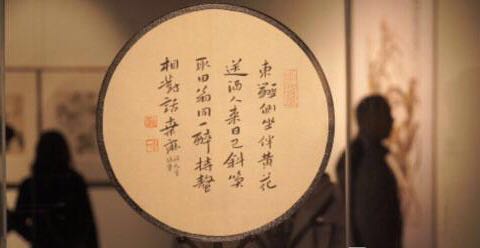 東籬側坐伴黄花
送酒人来日已斜喚
取田翁同一醉持螯
相對話桑麻